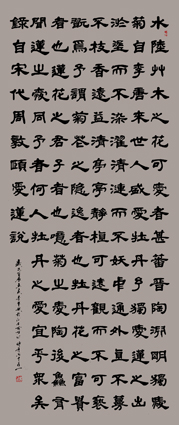 水陸草木之花可愛者甚蕃晉陶淵明獨愛
菊自李唐來世人盛愛牡丹予獨愛蓮之出
淤泥而不染濯清漣而不妖中通外直不蔓
不枝香遠益清亭亭靜植可遠觀而不可褻
翫焉予謂菊花之隱逸者也牡丹花之富貴
者也蓮花之君子者也噫菊之愛陶後鱻有
聞蓮之愛同予者何人牡丹之愛宜乎衆矣
錄自宋代周敦頤愛蓮說